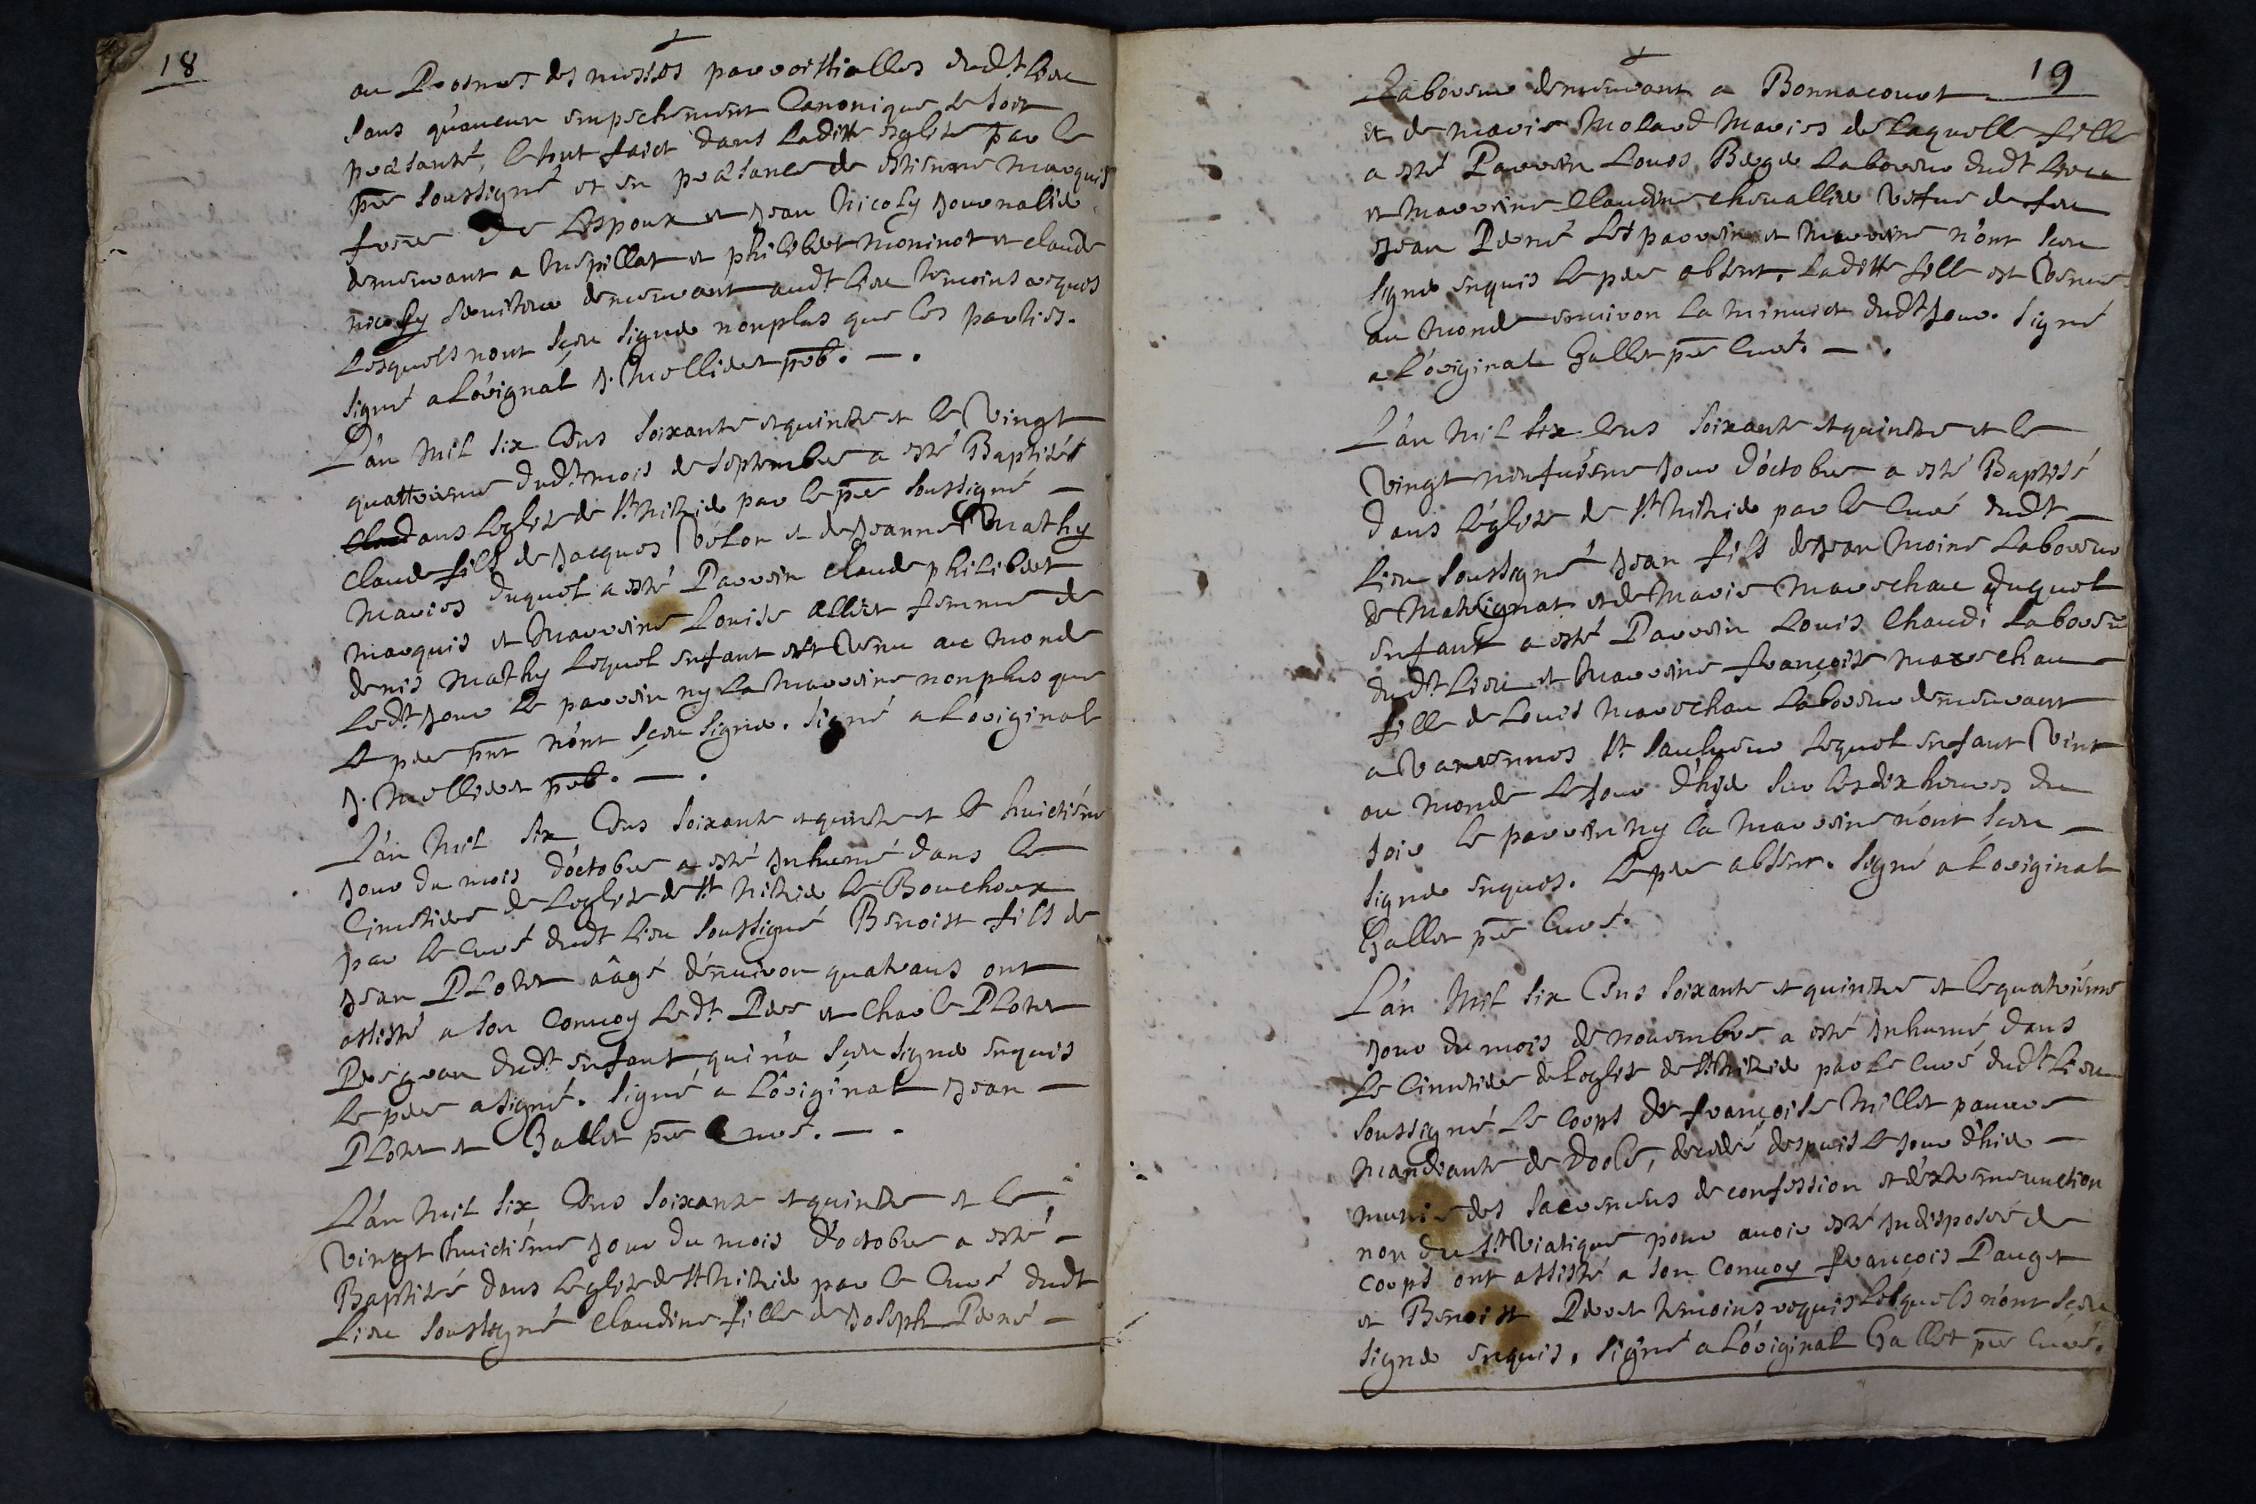 18
au Prosnes des messes parroissialles dudt lieu
sans qu'aucun empechement Canonique se soit
présanté, le tout faict dans laditte esglise par le
pre soussigné et en présance de estienne marquis
frere de Lespoux et Jean Nicoly Journalier
demeurant a Mespillat et philibert moninot et claude
nicoly serviteur demeurant audt lieu temoins requis
Lesquels nont sçeu signer nonplus que les parties.
signé a L'orignal J. Mellieret pbt. — .
L'an Mil six Cens soixante et quinze et le Vingt
quattrieme dudt mois de septembre a esté Baptisé
dans L'eglise de st nithier par le pre soussigné —
Claude fils de Jacques Velon et de Jeanne Mathy
Maries duquel a esté Parrein Claude philibert
marquis et Marreine Louise alliet femme de
denis Mathy lequel enfant est Venu au monde
Ledt Jour Le parrein ny La Marreine nonplus que
Le pere pnt n'ont sçeu signer. signé a L'original
J. Mellieret pbt. — .
L'an Mil six Cens soixante et quinze et le huictiéme
Jour du mois d'octobre a esté Inhumé dans le
Cimetiere de L'eglise de st nithier le Bouchoux
par le Curé dudt Lieu soussigné Benoist fils de
Jean PLotet aâgé d'environ quatreans ont
assisté a son Convoy Ledt Pere et Charle PLotet
Peregran dudt enfant qui n'a sçeu signer enquis
Le pere a signé. signé a L'original Jean —
PLotet et Gallet pre Curé. — .
L'an Mil six Cens soixante et quinze et le
vingt huictiéme Jour du mois d'octobre a esté —
Baptisé dans L'eglise de st nithier par le Curé dudt
Lieu soussigné Claudine fille de Joseph Perné —
19
Laboureur demeurant a Bonnacourt
et de Marie Molard Maries de Laquelle fille
a esté Parrein Louis Bege Laboureur dudt Lieu
et Marreine Claudine chevallier Vefue de feu
Jean Perné Les parrein et Marreine n'ont sçeu
signer enquis Le pere absent, laditte fille est Venue
au Monde environ La minuict dudt Jour. signé
a L'original Gallet pre Curé. — .
L'an Mil six cens soixante et quinze et le
Vingt neufuiéme Jour d'octobre a esté Baptisé
dans L'église de st nithier par le Curé dudt —
Lieu soussigné Jean fils de Jean Moine Laboureur
de Matrignat et de Marie Mareschau duquel
enfant a esté Parrein Louis Chaudi Laboureur
dudt Lieu et Marreine françoise Mareschau
fille de Louis Mareschau Laboureur demeurant
a Varennes st sauveur lequel enfant Vint
au Monde Le Jour d'hyer sur les dix heures du
soir Le parrein ny la Marreine n'ont sçeu —
signer enquis. Le pere absent. signé a L'original
Gallet pre Curé.
L'an Mil six Cens soixante et quinze et Le quatriéme
Jour du mois de Novembre a esté Inhumé dans
Le Cimetiere de L'eglise de st nithier par Le Curé dudt Lieu
soussigné Le Corps de françoise Millet pauvre
Mandiante de Doole, decedée despuis Le Jour d'hier —
munie des Sacremens de confession et d'extremeunction
non du st Viatique pour avoir esté Indisposée de
corps ont assisté a son Convoy françois Pauget
et Benoist Peret temoins requis Lesquels n'ont sçeu
signer enquis. signé a L'original Gallet pre Curé.